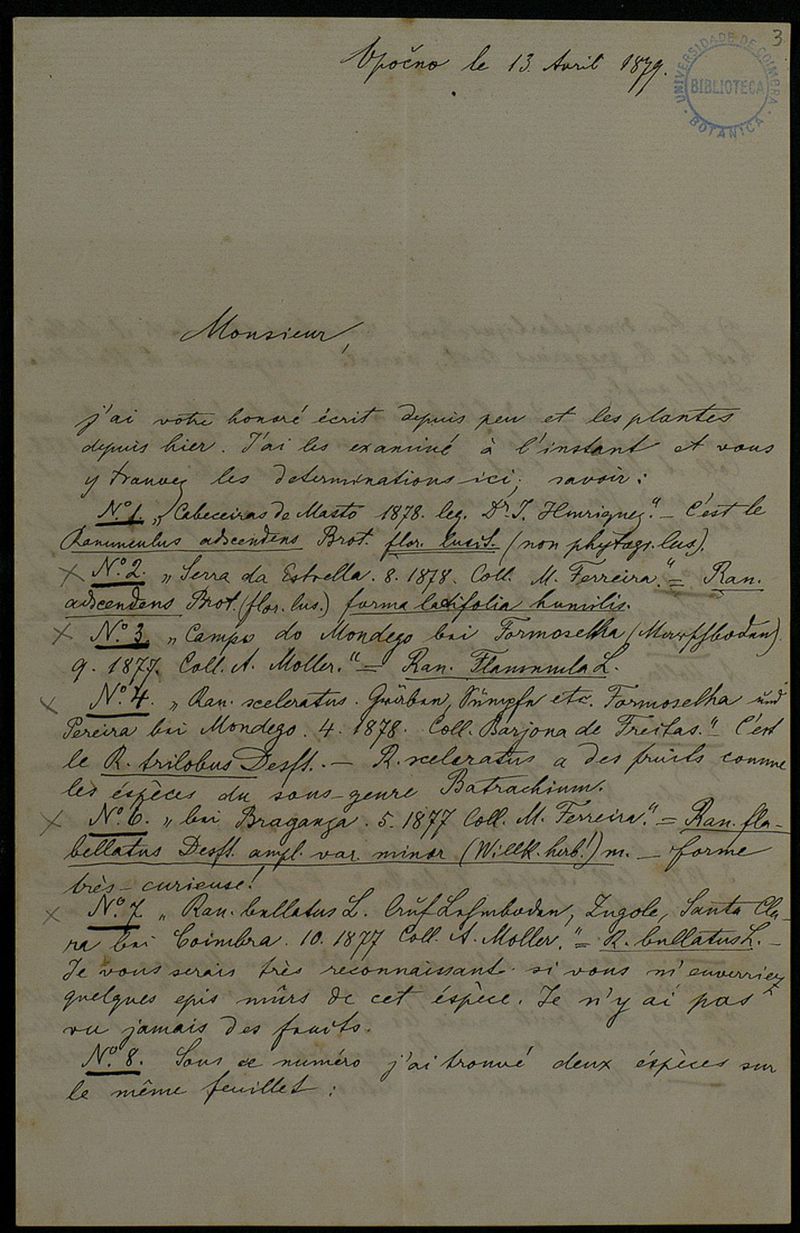 3
UNIVERSIDADE DE COIMBRA
BIBLIOTECA
BOTANICA
Opočno le 13. Avril 1879.
Monsieur,
j'ai votre honoré écrit depuis peu et les plantes
depuis hier. J'ai les examiné à l'instant et vous
y trouvez les determinations ici, savoir:
No. 1. „Cabeceiras de Masto 1878. leg. Dr. J. Henriquez." – C'est le
Ranunculus adscendens Brot. flor. lusit. (non phytogr. lus).
× No. 2. „Serra da Estrella. 8. 1878. Coll. M. Ferreira." = Ran.
adscendens Brot. (flor. lus.) forma latifolia humilis.
× No. 3. „Campo do Mondego bei Formoselha (Marschboden)
9. 1877. Coll. A. Moller." = Ran. Flammula L.
× No. 4. „Ran. sceleratus. Gräben, Sümpfe etc. Formoselha und
Pereira bei Mondego. 4. 1878. Coll. Barjona de Freitas." C'est
le R. trilobus Desft. – R. sceleratus a des fruits comme
les éspèces du sous-genre Batrachium.
× No. 6. „bei Bragança. 5. 1877 Coll. M. Ferreira." = Ran. fla-
bellatus Desft. ampl. var. minor (Willk. herb.!) m. – forme
très-curieuse!
× No. 7. „Ran. bullatus L. Auf Lehmboden, Zugole, Santa Cla-
ra bei Coimbra. 10. 1877 Coll. A. Moller." = R. bullatus L. –
Je vous serais très reconnaissant si vous m'enverriez
quelques epis mûrs de cet éspèce. Je n'y ai pas
vu jamais des fruits.
No. 8. Sous ce numéro j'ai trouvé deux éspèces sur
le même feuillet: